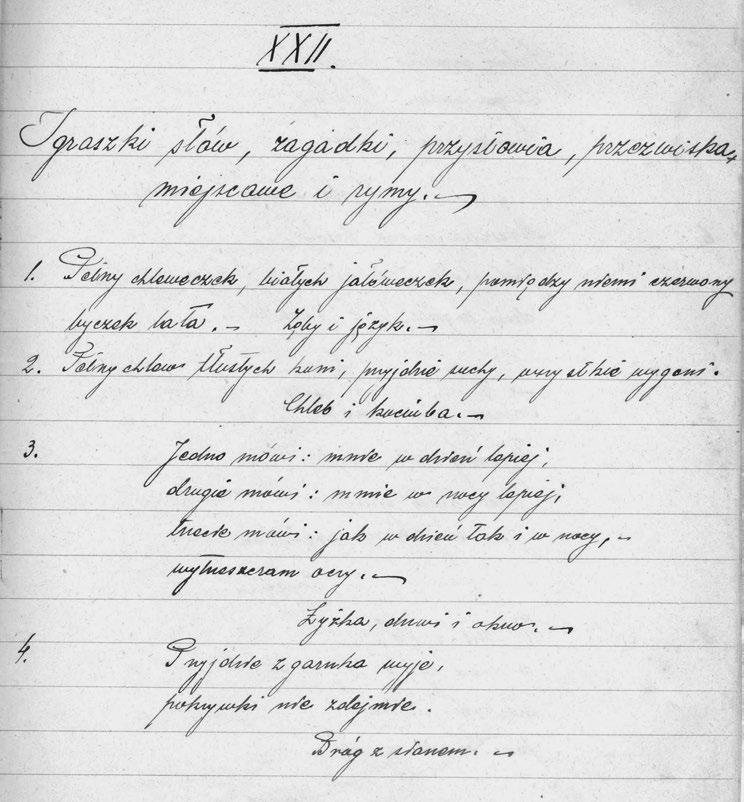 XXII.
Igraszki słów, zagadki, przysłowia, przezwiska
miejscowe i rymy.
1. Pełny chleweczek, białych jałóweczek, pomiędzy niemi czerwony
byczek lata. Zęby i język.
2. Pełny chlew tłustych koni, przyjdzie suchy, wszystkie wygoni.
Chleb i kociuba.
3. Jedno mówi: mnie w dzień lepiej,
drugie mówi: mnie w nocy lepiej,
trzecie mówi: jak w dzień tak i w nocy,
wytrzeszczam oczy.
Łyżka, drzwi i okno.
4. Przyjdzie z garnka wyje,
pokrywki nie zdejmie.
Bróg z sianem.